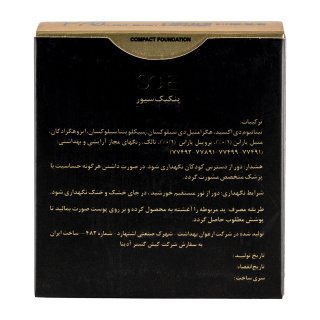 COMPACT FOUNDATION
پنکیک سیور
ترکیبات:
تیتانیوم دی اکسید، هگزامتیل دی سیلوکسان، سیکلو پنتا سیلوکسان، ایزوهگزادکان،
متیل پارابن (٪۰/۲)، پروپیل پارابن (٪۰/۲)، تالک، رنگهای مجاز آرایشی و بهداشتی:
(۷۷۴۹۱-۷۷۴۹۹-۷۷۸۹۱-۷۷۴۹۲)
هشدار: دور از دسترس کودکان نگهداری شود. در صورت داشتن هرگونه حساسیت با
پزشک متخصص مشورت گردد.
شرایط نگهداری: دور از نور مستقیم خورشید، در جای خشک و خنک نگهداری شود.
طریقه مصرف: پد مربوطه را آغشته به محصول کرده و بر روی پوست صورت بمالید تا
پوشش مطلوب حاصل گردد.
تولید شده در شرکت ارغوان بهداشت - شهرک صنعتی اشتهارد - شماره ۴۸۲ - ساخت ایران
به سفارش شرکت کیش گستر آدینا
تاریخ تولید:
تاریخ انقضاء:
سری ساخت: